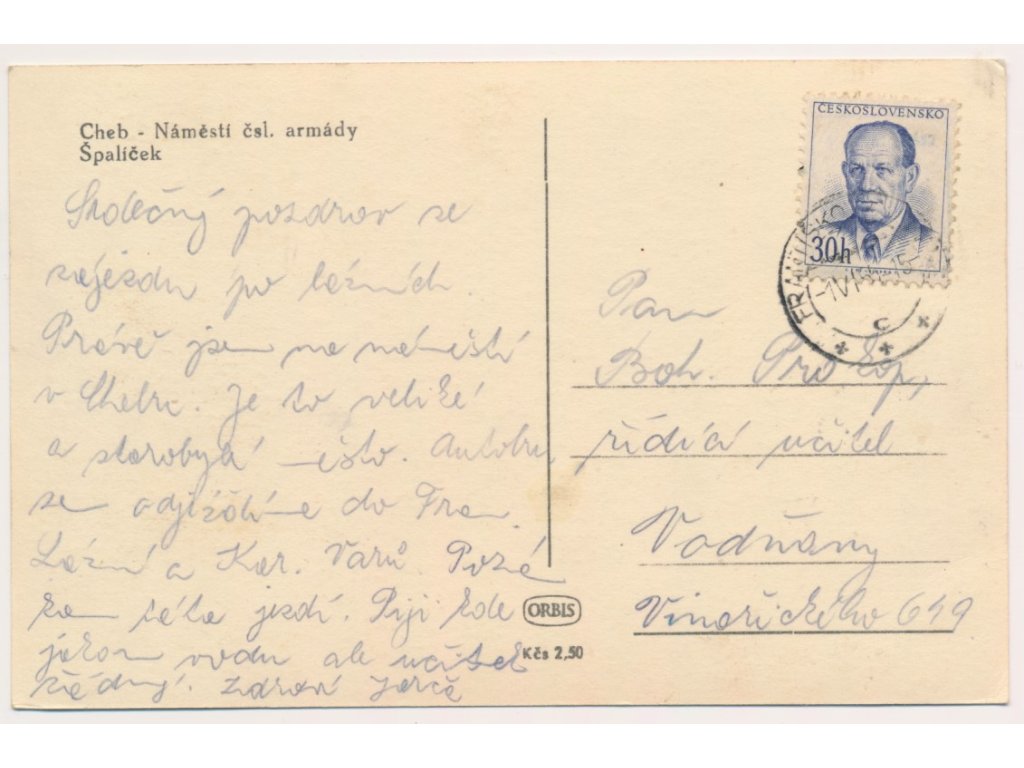 Cheb - Náměstí čsl. armády
Špalíček
Srdečný pozdrav ze
zájezdu po lázních.
Právě jsem na náměstí
v Chebu. Je to veliké
a starobylé město. Autobu
sem odjíždíme do Fran.
Lázní a Kar. Varů.
jezdí. Piji kde
jakou vodu ale
žádný. Zdraví
ORBIS
Kčs 2,50
ČESKOSLOVENSKO
30h
C
Pan
Boh. Prokop,
řídící učitel
Vodňany
Vinařického 649